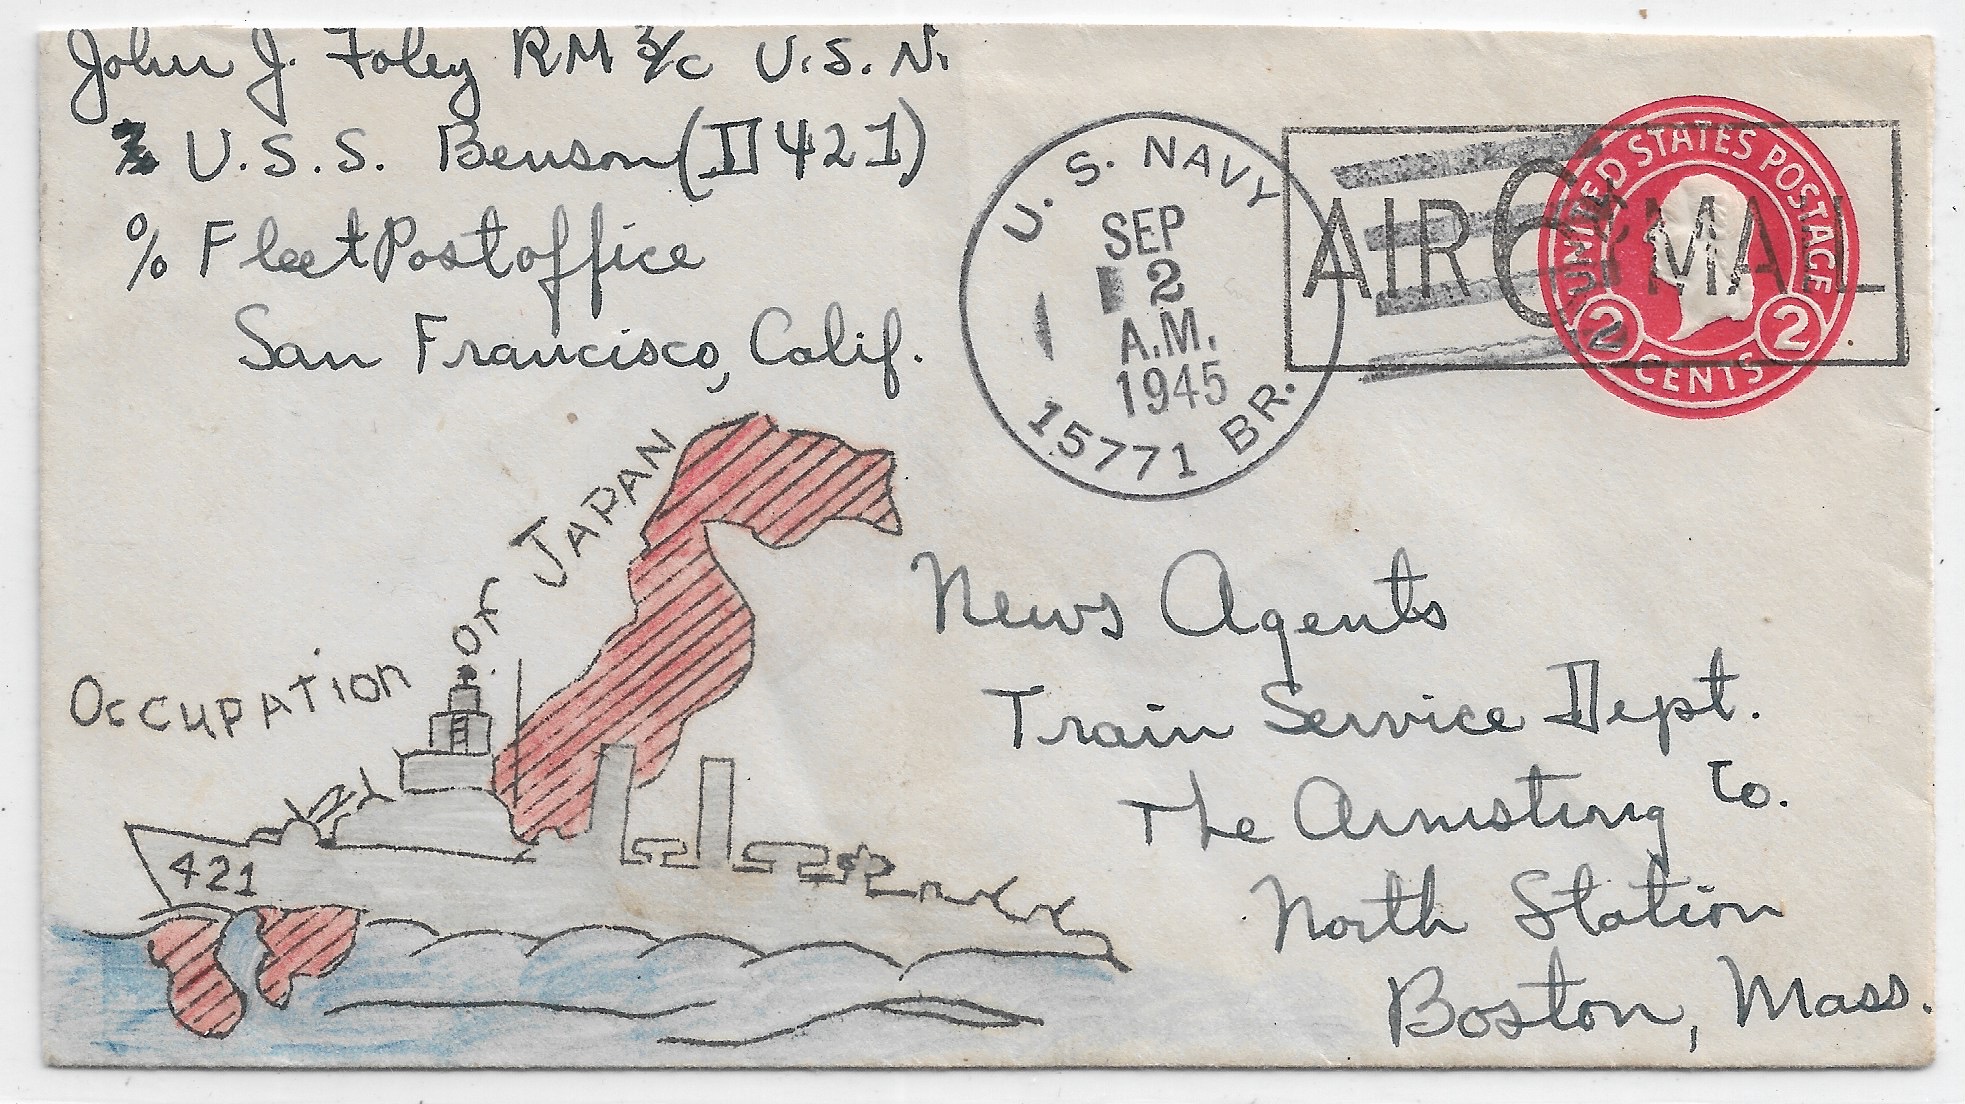 John J. Foley RM 3/c U.S.N.
U.S.S. Benson (D421)
% Fleet Post office
San Francisco, Calif.
U. S. NAVY
SEP
2
A.M.
1945
15771 BR.
AIR 6¢ MAIL
UNITED STATES POSTAGE
2 CENTS 2
OCCUPATION OF JAPAN
421
News Agents
Train Service Dept.
The Armstrong Co.
North Station
Boston, Mass.